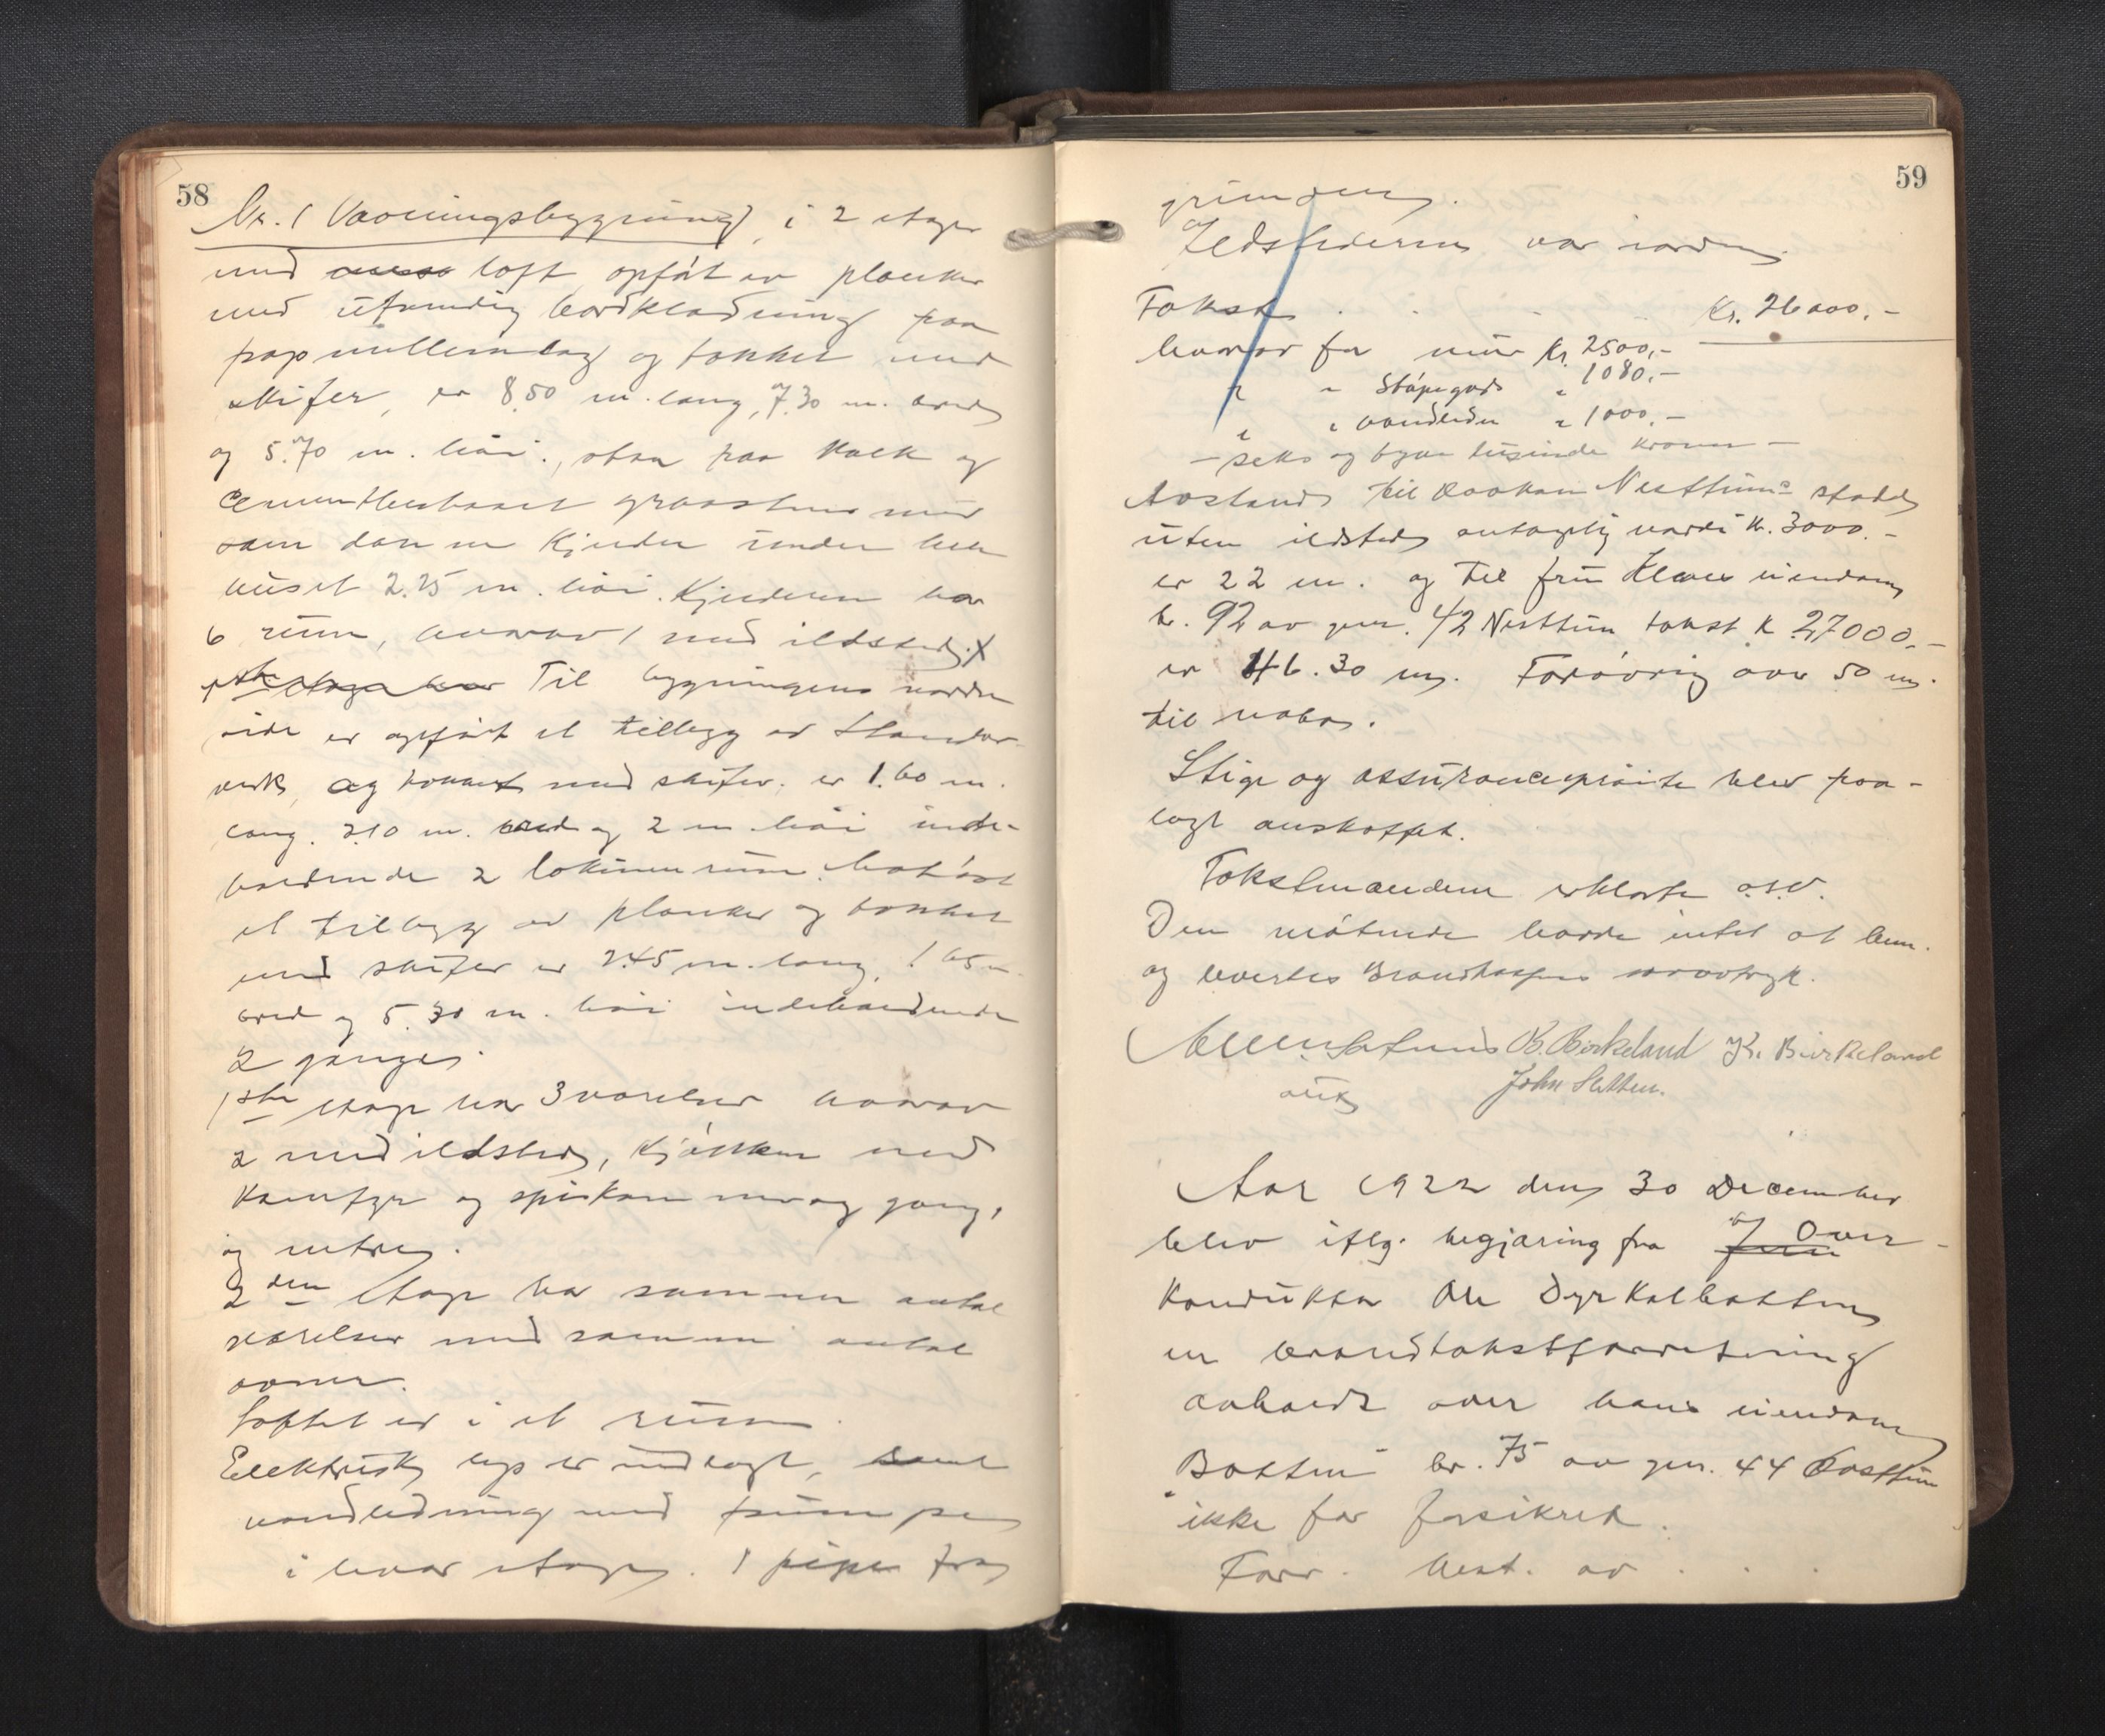 58
Nr. 1 Vaaningsbygning, i 2 etager
med loft, opført av planker
med utvendig bordklædning paa
papmellemlag og tækket med
skifer, er 8.50 m. lang, 7.30 m. bred
og 5.70 m. høi, staar paa kalk og
cementberappet graastensmur
som danner kjelder under hele
huset 2.25 m. høi. Kjelderen har
6 rum, hvorav 1 med ildsted. X
1ste etage har Til bygningens nordre
side er opført et tillegg av stender-
verk, og tækket med skifer, er 1.60 m.
lang, 2.10 m. bred og 2 m. høi inde-
holdende 2 lokumrum.
et tillegg av planker og tækket
med skifer er 2.45 m. lang, 1.65 m.
bred og 5.30 m. høi indeholdende
2 ganger.
1ste etage har 3 værelser hvorav
2 med ildsted, kjøkken med
komfyr og spiskammer og gang,
og entre.
2den etage har samme antal
værelser med samme antal
ovner.
Loftet er i et rum.
Elektrisk lys er indlagt, samt
vandledning med pumpe
i hver etage. 1 pipe fra
59
grunden.
Ildstederne var i orden.
Takst . . . Kr. 26000,-
hvorav for mur Kr. 2500,-
" " Støpegods " 1080,-
" " vandleden " 1000,-
- seks og tyve tusinde kroner -
Avstand til Haakon Nesttuns stald
uten ildsted antagelig værdi kr. 3000.-
er 22 m. og til fru eiendom
br. 92 av gnr. 42 Nesttun takst k 27000,-
er 46.30 m. Forøvrig over 50 m.
til nabo.
Stige og assuransesprøite blev paa-
lagt anskaffet.
Takstmændene erklærte o.s.v.
Den møtende hadde intet at bem.
og levertes Brandkassens særavtryk.
B. Birkeland Birkeland
John Sletten.
Aar 1922 den 30 December
blev iflg. begjæring fra Over-
konduktør Ole Dyrkolbotten
en brandtakstforretning
avholdt over hans eiendom
"Botten" br. 75 av gnr. 44
ikke før forsikret.
Forr. best. av . . .